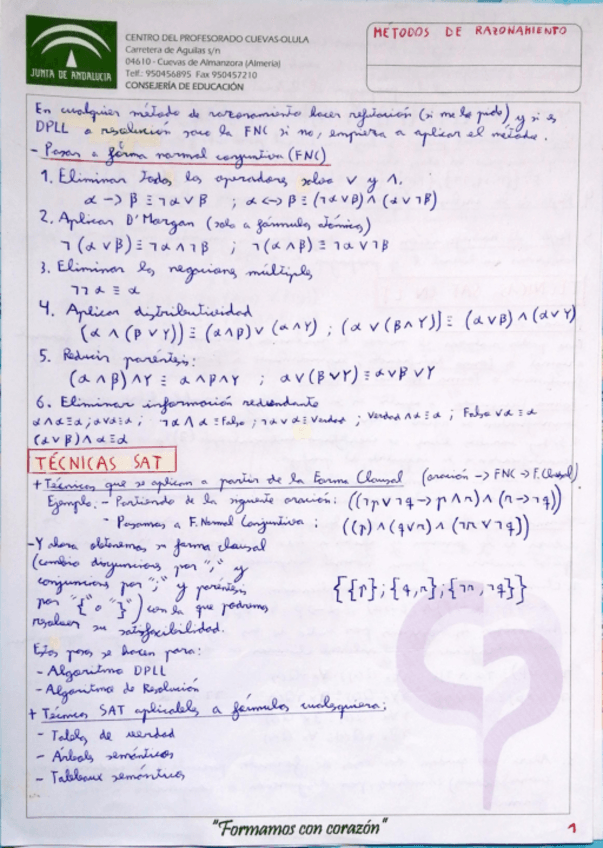 JUNTA DE ANDALUCIA
CENTRO DEL PROFESORADO CUEVAS-OLULA
Carretera de Aguilas s/n
04610 - Cuevas de Almanzora (Almería)
Telf.: 950456895 Fax 950457210
CONSEJERÍA DE EDUCACIÓN
METODOS DE RAZONAMIENTO
En cualquier método de razonamiento hacer refutación (si me lo pide) y si es
DPLL o resolución saco la FNC si no, empieza a aplicar el método.
- Pasar a forma normal conjuntiva (FNC)
1. Eliminar todos los operadores salvo ∨ y ∧.
α -> β ≡ ¬α∨β ; α <-> β ≡ (¬α∨β)∧(α∨¬β)
2. Aplicar D'Morgan (solo a fórmulas atómicas)
¬(α∨β)≡¬α∧¬β ; ¬(α∧β)≡¬α∨¬β
3. Eliminar las negaciones múltiples
¬¬α ≡ α
4. Aplicar distributividad
(α∧(β∨γ)) ≡ (α∧β)∨(α∧γ) ; (α∨(β∧γ)) ≡ (α∨β)∧(α∨γ)
5. Reducir paréntesis:
(α∧β)∧γ ≡ α∧β∧γ ; α∨(β∨γ)≡α∨β∨γ
6. Eliminar información redundante
α∧α≡α ; α∨α≡α ; ¬α∧α≡Falso ; ¬α∨α≡Verdad ; Verdad∧α≡α ; Falso∨α≡α
(α∨β)∧α≡α
TÉCNICAS SAT
+ Técnicas que se aplican a partir de la Forma Clausal (oración -> FNC -> F.Clausal).
Ejemplo: - Partiendo de la siguiente oración: ((¬p∨¬q->p∧r)∧(r->¬q))
- Pasamos a F.Normal Conjuntiva: ((p)∧(q∨r)∧(¬r∨¬q))
- Y ahora obtenemos su forma clausal
(cambio disyunciones por "," y
conjunciones por ";" y paréntesis
por "{" o "}") con la que podremos
resolver su satisfacibilidad.
{{p};{q,r};{¬r,¬q}}
Estos pasos se hacen para:
- Algoritmo DPLL
- Algoritmo de Resolución
+ Técnicas SAT aplicables a fórmulas cualesquiera:
- Tablas de verdad
- Árboles semánticos
- Tableaux semánticos
"Formamos con corazón"
1